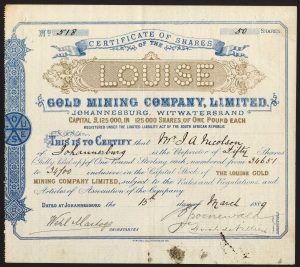 No. 518
50 Shares.
CERTIFICATE OF SHARES
OF THE
LOUISE
GOLD MINING COMPANY, LIMITED.
JOHANNESBURG, WITWATERSRAND
CAPITAL £125,000, IN 125,000 SHARES, OF ONE POUND EACH
REGISTERED UNDER THE LIMITED LIABILITY ACT OF THE SOUTH AFRICAN REPUBLIC
THIS IS TO CERTIFY that Mr J. A. Nicolson
of Johannesburg is the Proprietor of Fifty Shares
Fully paid up of One Pound Sterling each, numbered from 34651
to 34700 inclusive, in the Capital Stock of THE LOUISE GOLD
MINING COMPANY LIMITED, subject to the Rules and Regulations, and
Articles of Association of the Company.
DATED AT JOHANNESBURG the 13th day of March 1889